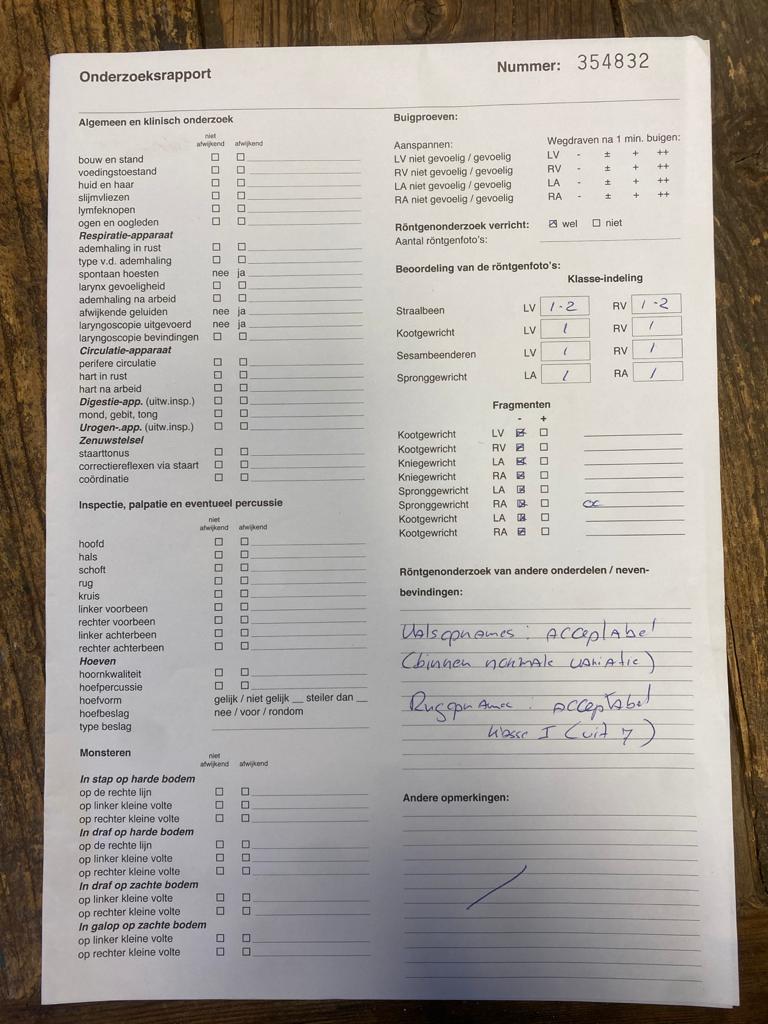 Onderzoeksrapport
Nummer: 354832
Algemeen en klinisch onderzoek
niet afwijkend afwijkend
bouw en stand
voedingstoestand
huid en haar
slijmvliezen
lymfeknopen
ogen en oogleden
Respiratie-apparaat
ademhaling in rust
type v.d. ademhaling
spontaan hoesten nee ja
larynx gevoeligheid
ademhaling na arbeid
afwijkende geluiden nee ja
laryngoscopie uitgevoerd nee ja
laryngoscopie bevindingen
Circulatie-apparaat
perifere circulatie
hart in rust
hart na arbeid
Digestie-app. (uitw.insp.)
mond, gebit, tong
Urogen-.app. (uitw.insp.)
Zenuwstelsel
staarttonus
correctiereflexen via staart
coördinatie
Inspectie, palpatie en eventueel percussie
niet afwijkend afwijkend
hoofd
hals
schoft
rug
kruis
linker voorbeen
rechter voorbeen
linker achterbeen
rechter achterbeen
Hoeven
hoornkwaliteit
hoefpercussie
hoefvorm gelijk / niet gelijk __ steiler dan __
hoefbeslag nee / voor / rondom
type beslag
Monsteren
niet afwijkend afwijkend
In stap op harde bodem
op de rechte lijn
op linker kleine volte
op rechter kleine volte
In draf op harde bodem
op de rechte lijn
op linker kleine volte
op rechter kleine volte
In draf op zachte bodem
op linker kleine volte
op rechter kleine volte
In galop op zachte bodem
op linker kleine volte
op rechter kleine volte
Buigproeven:
Aanspannen: Wegdraven na 1 min. buigen:
LV niet gevoelig / gevoelig LV - ± + ++
RV niet gevoelig / gevoelig RV - ± + ++
LA niet gevoelig / gevoelig LA - ± + ++
RA niet gevoelig / gevoelig RA - ± + ++
Röntgenonderzoek verricht: wel niet
Aantal röntgenfoto's:
Beoordeling van de röntgenfoto's:
Klasse-indeling
Straalbeen LV 1-2 RV 1-2
Kootgewricht LV 1 RV 1
Sesambeenderen LV 1 RV 1
Spronggewricht LA 1 RA 1
Fragmenten
- +
Kootgewricht LV
Kootgewricht RV
Kniegewricht LA
Kniegewricht RA
Spronggewricht LA
Spronggewricht RA
Kootgewricht LA
Kootgewricht RA
Röntgenonderzoek van andere onderdelen / neven-
bevindingen:
Halsopnames: acceptabel
(binnen normale variatie)
Rugopnamei: acceptabel
klasse I (uit 7)
Andere opmerkingen: